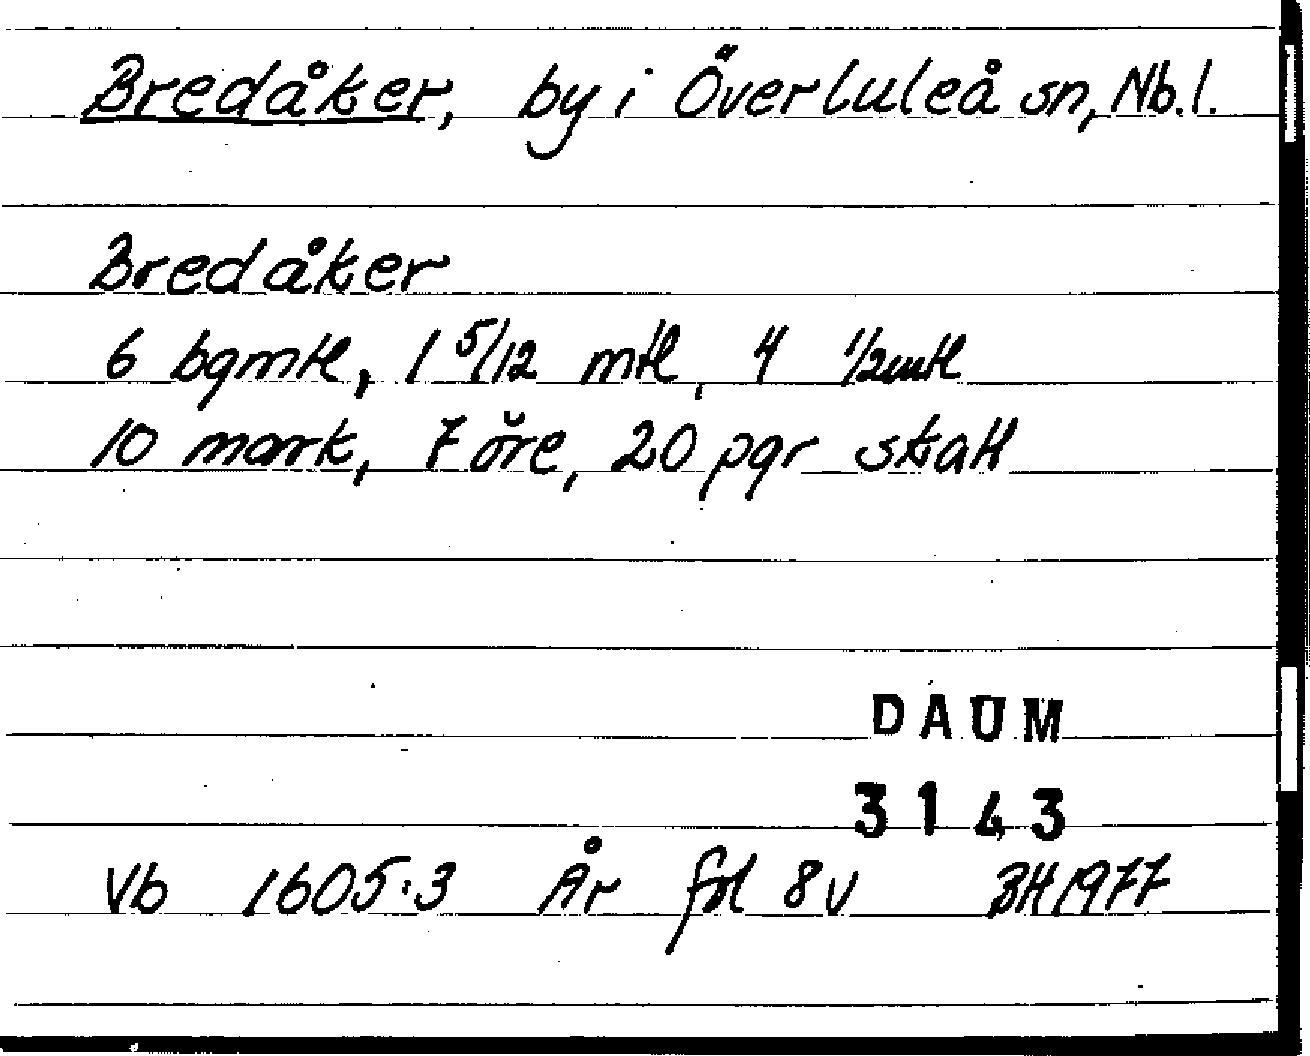 Bredåker, by i Överluleå sn, Nb.l.
Bredåker
6 bgmtl, 1 5/12 mtl, 4 1/2mtl
10 mark, 7 öre, 20 pgr skatt
DAUM
3143
Vb 1605:3 År fol 8v BH 1977